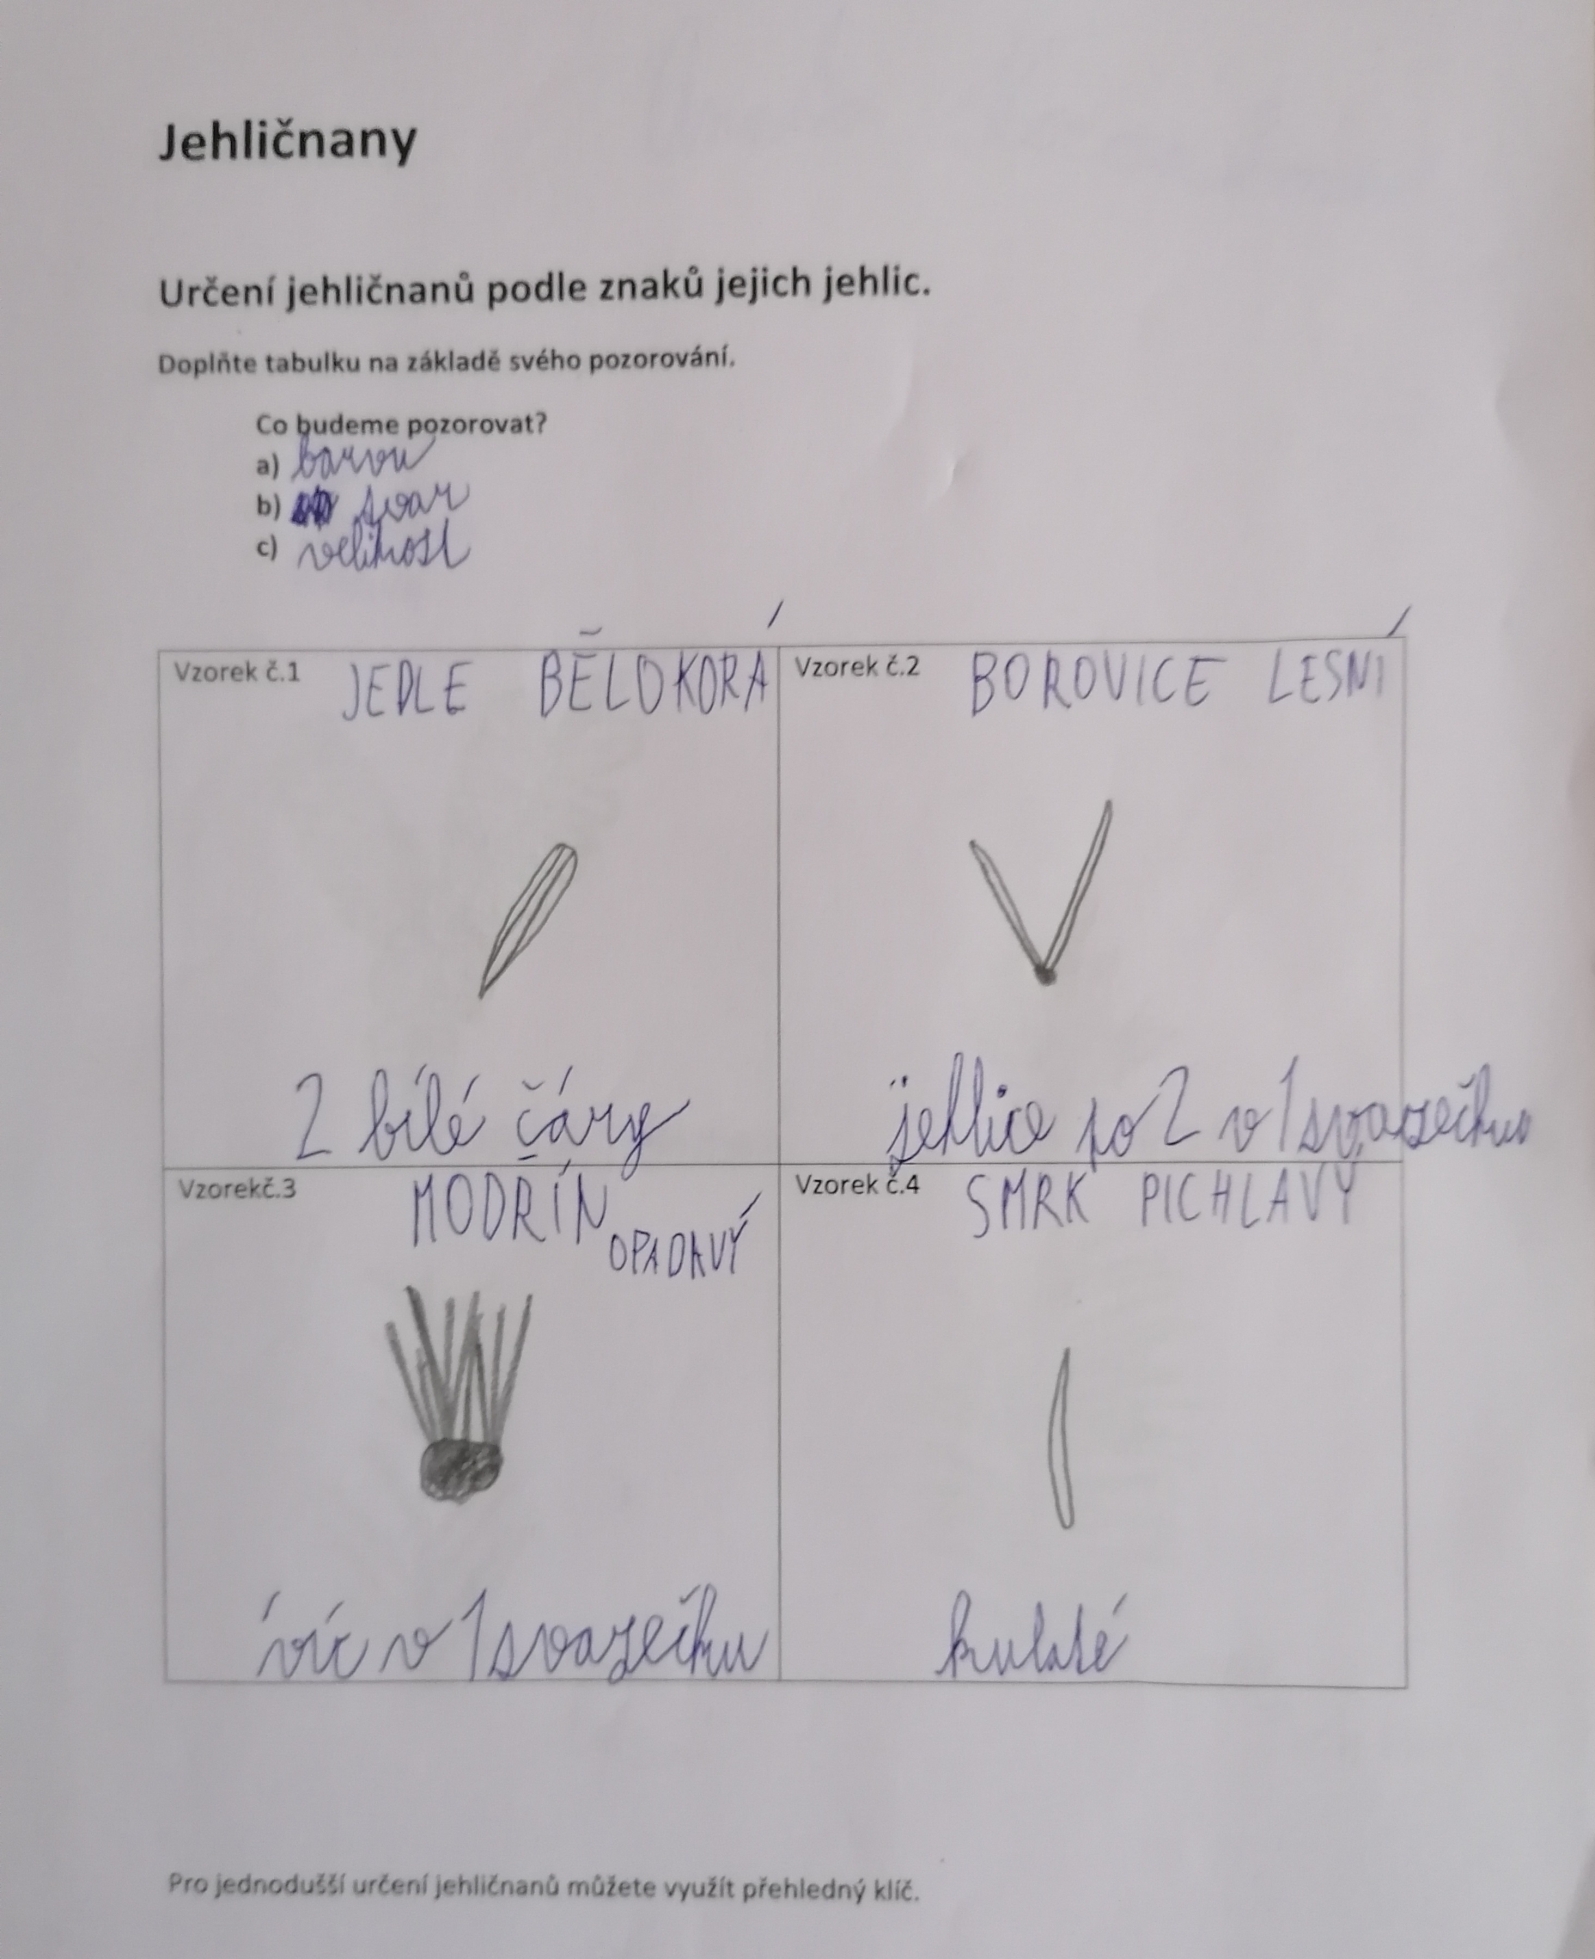 Jehličnany
Určení jehličnanů podle znaků jejich jehlic.
Doplňte tabulku na základě svého pozorování.
Co budeme pozorovat?
a) barvu
b) tvar
c) velikost
Vzorek č.1 JEDLE BĚLOKORÁ
2 bílé čáry
Vzorek č.2 BOROVICE LESNÍ
jehlice po 2 v 1 svazečku
Vzorekč.3 MODŘÍN
OPADAVÝ
víc v 1 svazečku
Vzorek č.4 SMRK PICHLAVÝ
kulaté
Pro jednodušší určení jehličnanů můžete využít přehledný klíč.